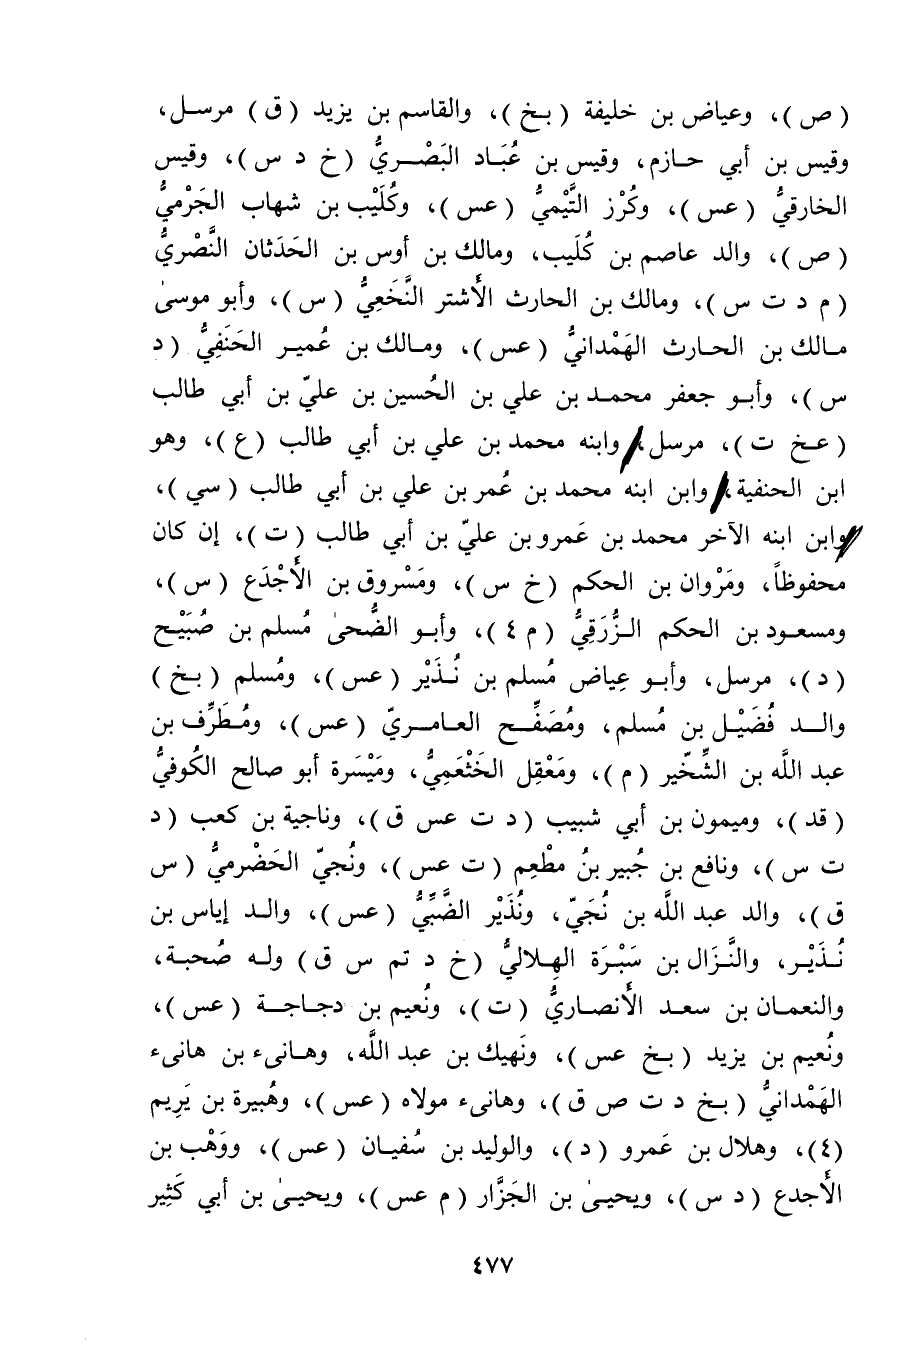 ( ص ) ، وعياض بن خليفة ( بخ ) ، والقاسم بن يزيد ( ق ) مرسل ،
وقيس بن أبي حازم ، وقيس بن عُبَاد البَصْريُّ ( خ د س ) ، وقيس
الخارقيُّ ( عس ) ، وكُرْز التَّيْميُّ ( عس ) ، وكُلَيْب بن شهاب الجَرْميُّ
( ص ) ، والد عاصم بن كُلَيب ، ومالك بن أوس بن الحَدَثان النَّصْريُّ
( م د ت س ) ، ومالك بن الحارث الأشتر النَّخَعِيُّ ( س ) ، وأبو موسىٰ
مالك بن الحارث الهَمْدانيُّ ( عس ) ، ومالك بن عُمير الحَنَفِيُّ ( د
س ) ، وأبو جعفر محمد بن علي بن الحُسين بن عليّ بن أبي طالب
( عخ ت ) ، مرسل ، وابنه محمد بن علي بن أبي طالب ( ع ) ، وهو
ابن الحنفية ، وابن ابنه محمد بن عُمر بن علي بن أبي طالب ( سي ) ،
وابن ابنه الآخر محمد بن عَمرو بن عليّ بن أبي طالب ( ت ) ، إن كان
محفوظاً ، ومَرْوان بن الحكم ( خ س ) ، ومَسْروق بن الأَجْدَع ( س ) ،
ومسعود بن الحكم الزُّرَقِيُّ ( م ٤ ) ، وأبو الضُّحىٰ مُسلم بن صُبَيْح
( د ) ، مرسل ، وأبو عِياض مُسلم بن نُذَيْر ( عس ) ، ومُسلم ( بخ )
والد فُضَيْل بن مُسلم ، ومُصَفِّح العامريّ ( عس ) ، ومُطَرِّف بن
عبد اللَّه بن الشِّخّير ( م ) ، ومَعْقِل الخَثْعَمِيُّ ، ومَيْسَرة أبو صالح الكُوفيُّ
( قد ) ، وميمون بن أبي شبيب ( د ت عس ق ) ، وناجية بن كعب ( د
ت س ) ، ونافع بن جُبير بنُ مطْعِم ( ت عس ) ، ونُجيّ الحَضْرميُّ ( س
ق ) ، والد عبد اللَّه بن نُجَيّ ، ونُذَيْر الضَّبِّيُّ ( عس ) ، والد إياس بن
نُذَيْر ، والنَّزَال بن سَبْرَة الهِلاليُّ ( خ د تم س ق ) وله صُحبة ،
والنعمان بن سعد الأنصاريُّ ( ت ) ، ونُعيم بن دجاجة ( عس ) ،
ونُعيم بن يزيد ( بخ عس ) ، ونَهيك بن عبد اللَّه ، وهانىء بن هانىء
الهَمْدانيُّ ( بخ د ت ص ق ) ، وهانىء مولاه ( عس ) ، وهُبيرة بن يَرِيم
( ٤ ) ، وهلال بن عَمرو ( د ) ، والوليد بن سُفيان ( عس ) ، ووَهْب بن
الأَجدع ( د س ) ، ويحيىٰ بن الجَزَّار ( م عس ) ، ويحيىٰ بن أبي كَثِير
٤٧٧